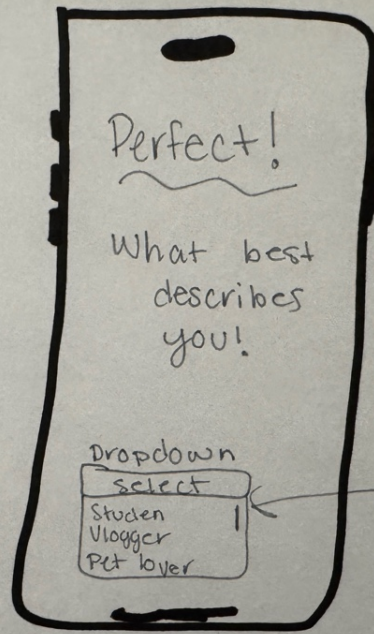 Perfect!
What best
describes
you!
Dropdown
select
Studen
Vlogger
Pet lover